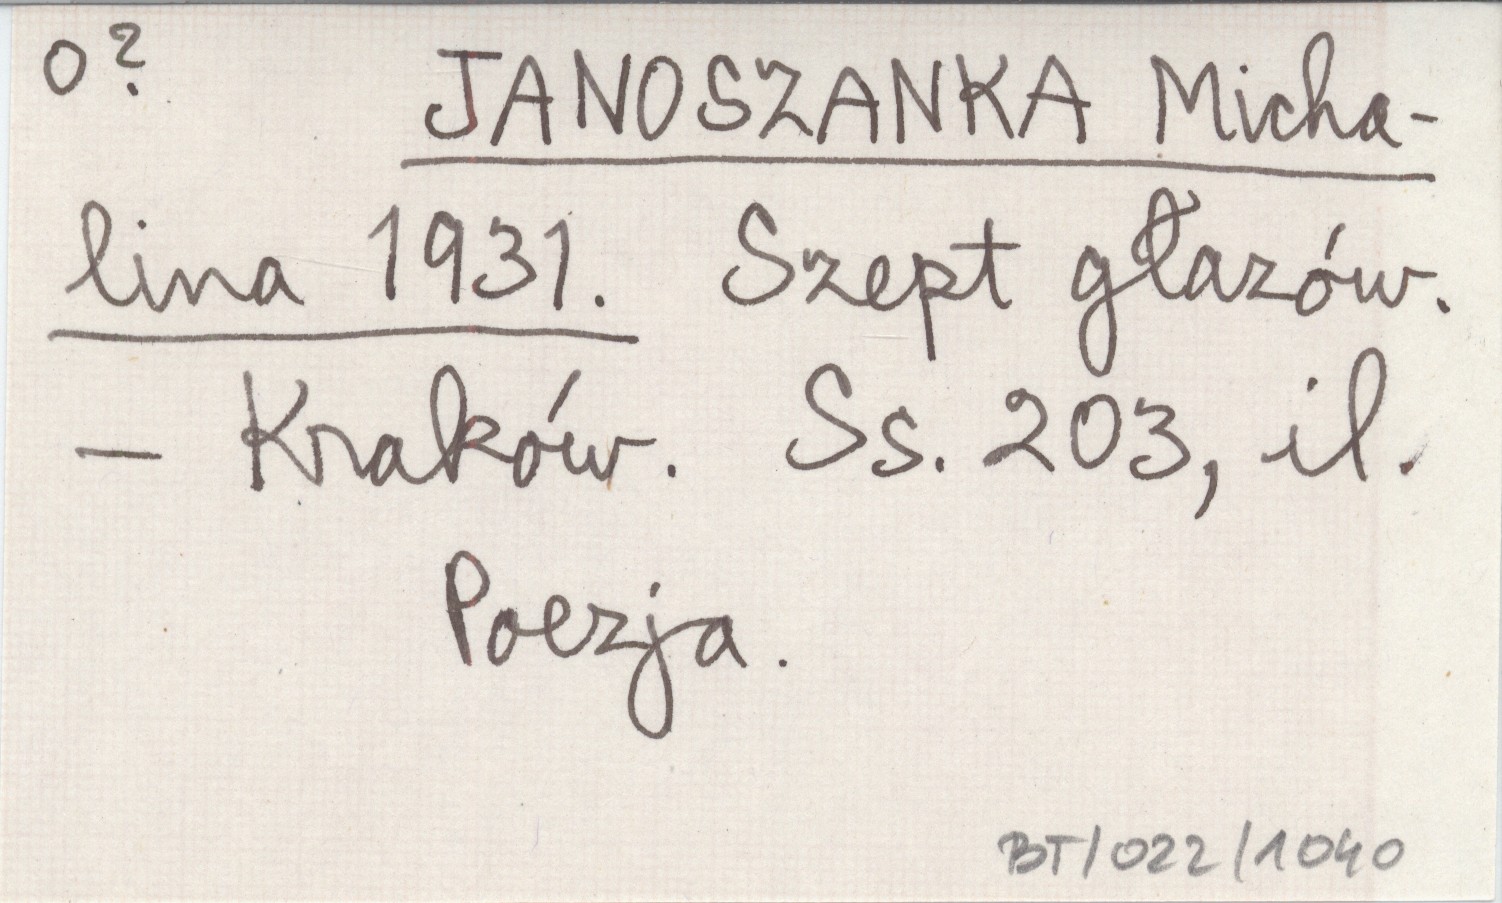 o?
JANOSZANKA Micha-
lina 1931. Szept głazów.
– Kraków. Ss. 203, il.
Poezja.
BT/022/1040